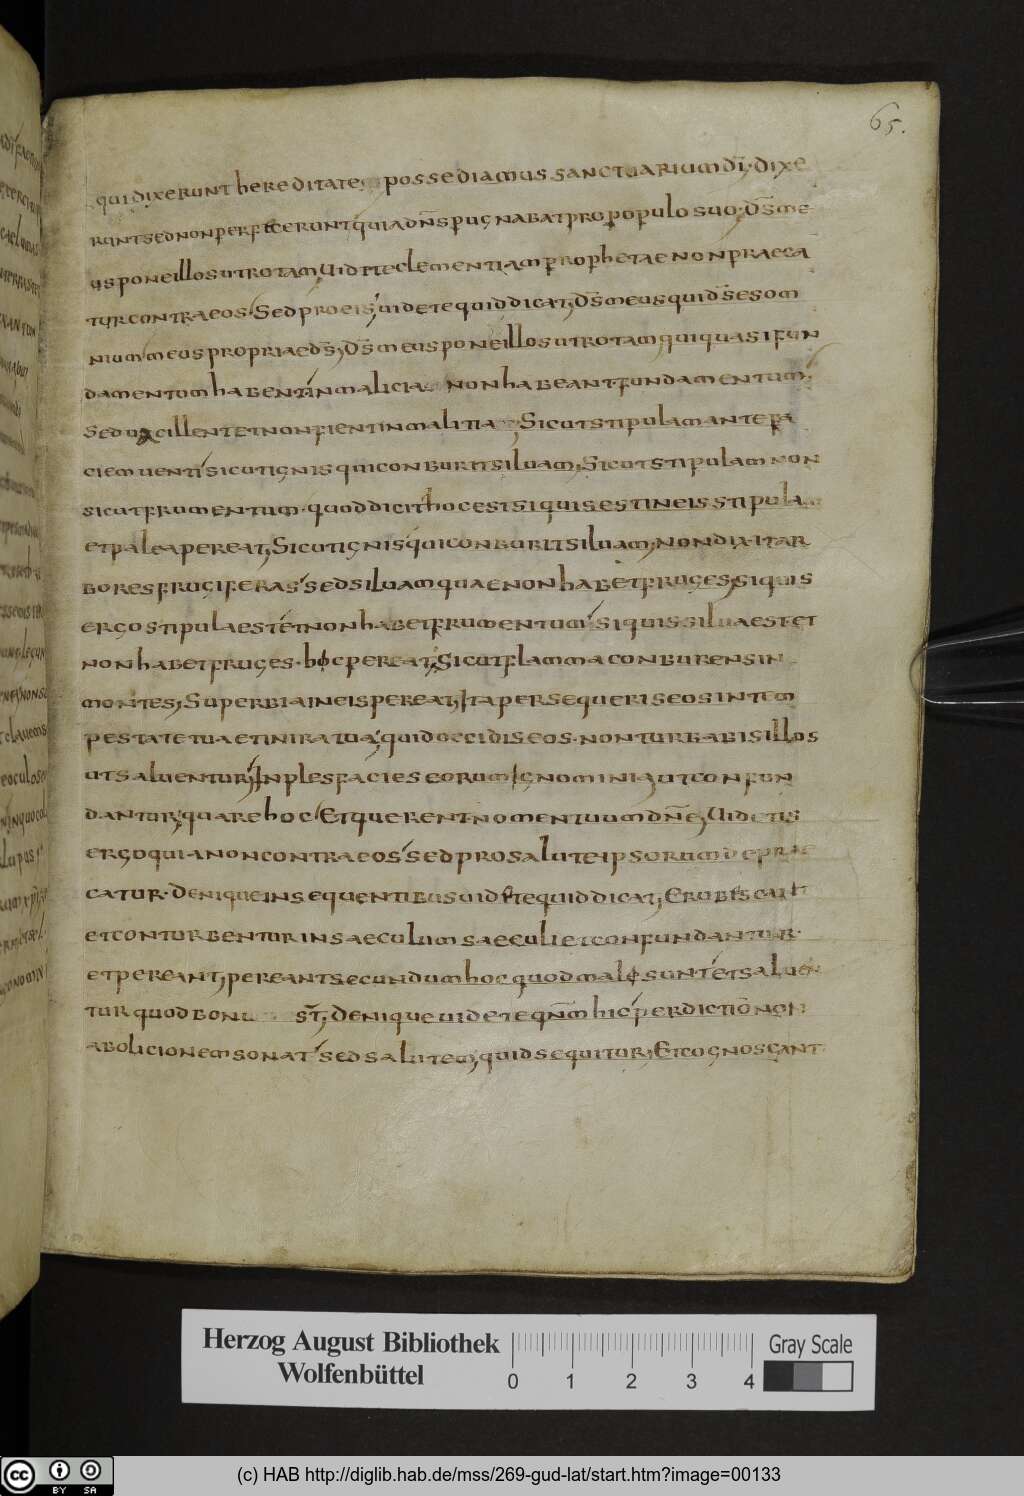 65.
qui dixerunt hereditate possediamus sanctuarium dī· dixe
runt sed non perfecerunt quia dn̄s pugnabat pro populo suo; ds̄ me
us pone illos ut rotam; Uidete clementiam prophetae non praeca
tur contra eos Sed pro eis; uidete quid dicat; Ds̄ meus qui ds̄ es om
nium meus propriae ds̄; Ds̄ meus pone illos ut rotam qui quasi fun
damentum habent in malicia non habeant fundamentum;
sed uacillent et non fient in malitia; Sicut stipulam ante fa
ciem uenti sicut ignis qui conburit siluam; Sicut stipulam non
sicut frumentum· quod dicit hoc est si quis est in eis stipula
et palea pereat; Sicut ignis qui conburit siluam; non dixit ar
bores frugiferas sed siluam quae non habet fruges; si quis
ergo stipula est et non habet frumentum si quis silua est et
non habet fruges· hoc pereat; Sicut flamma conburens in
montes; Superbia in eis pereat; Ita persequeris eos in tem
pestate tua et in ira tua; quid occidis eos· non turbabis illos
ut saluentur; Inples facies eorum ignominia; ut confun
dantur; quare hoc Et querent nomen tuum dn̄e; Uidetis
ergo quia non contra eos sed pro salute ipsorum deprae
catur· Denique in sequentibus uidete quid dicat; Erubescant
et conturbentur in saeculum saeculi et confundantur·
et pereant; pereant secundum hoc quod mali sunt et saluen
tur quod boni st̄; Denique uidete qn̄m hic perdictiō non
abolicionem sonat sed salutem; quid sequitur; Et cognoscant
Herzog August Bibliothek
Wolfenbüttel
0 1 2 3 4
Gray Scale
(c) HAB http://diglib.hab.de/mss/269-gud-lat/start.htm?image=00133
cc BY SA